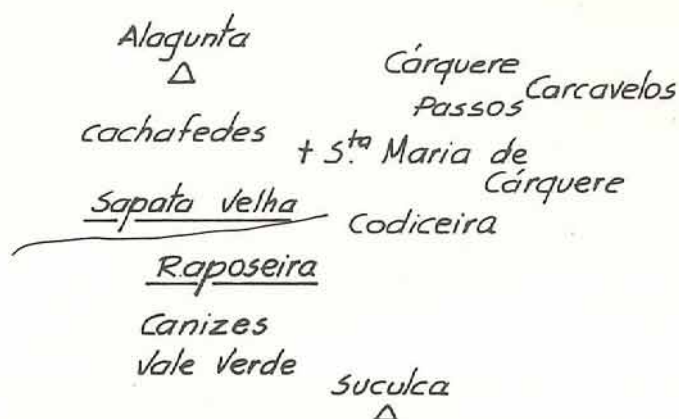 Alagunta
Cárquere
Carcavelos
Passos
Cachafedes
+ S.ta Maria de
Cárquere
Sapata Velha
Codiceira
Raposeira
Canizes
Vale Verde
Suculca